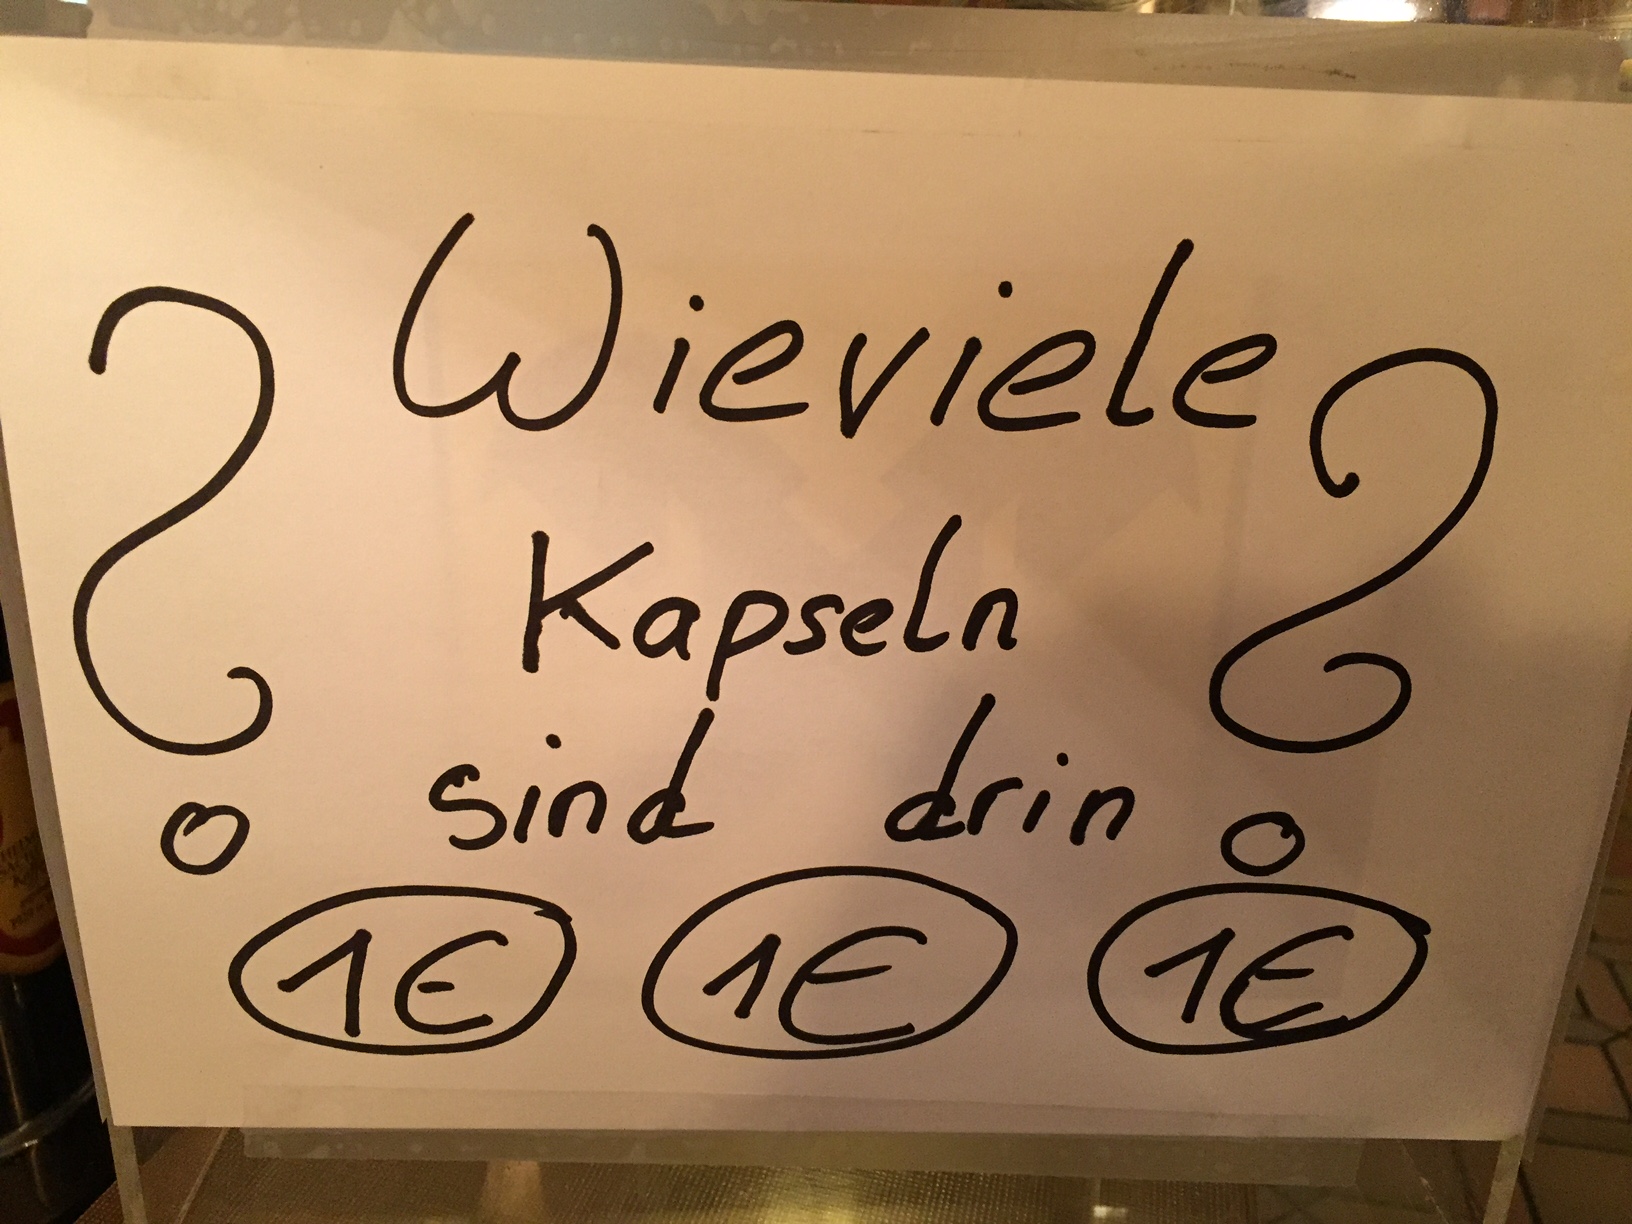 ? Wieviele ?
Kapseln
sind drin
1€ 1€ 1€